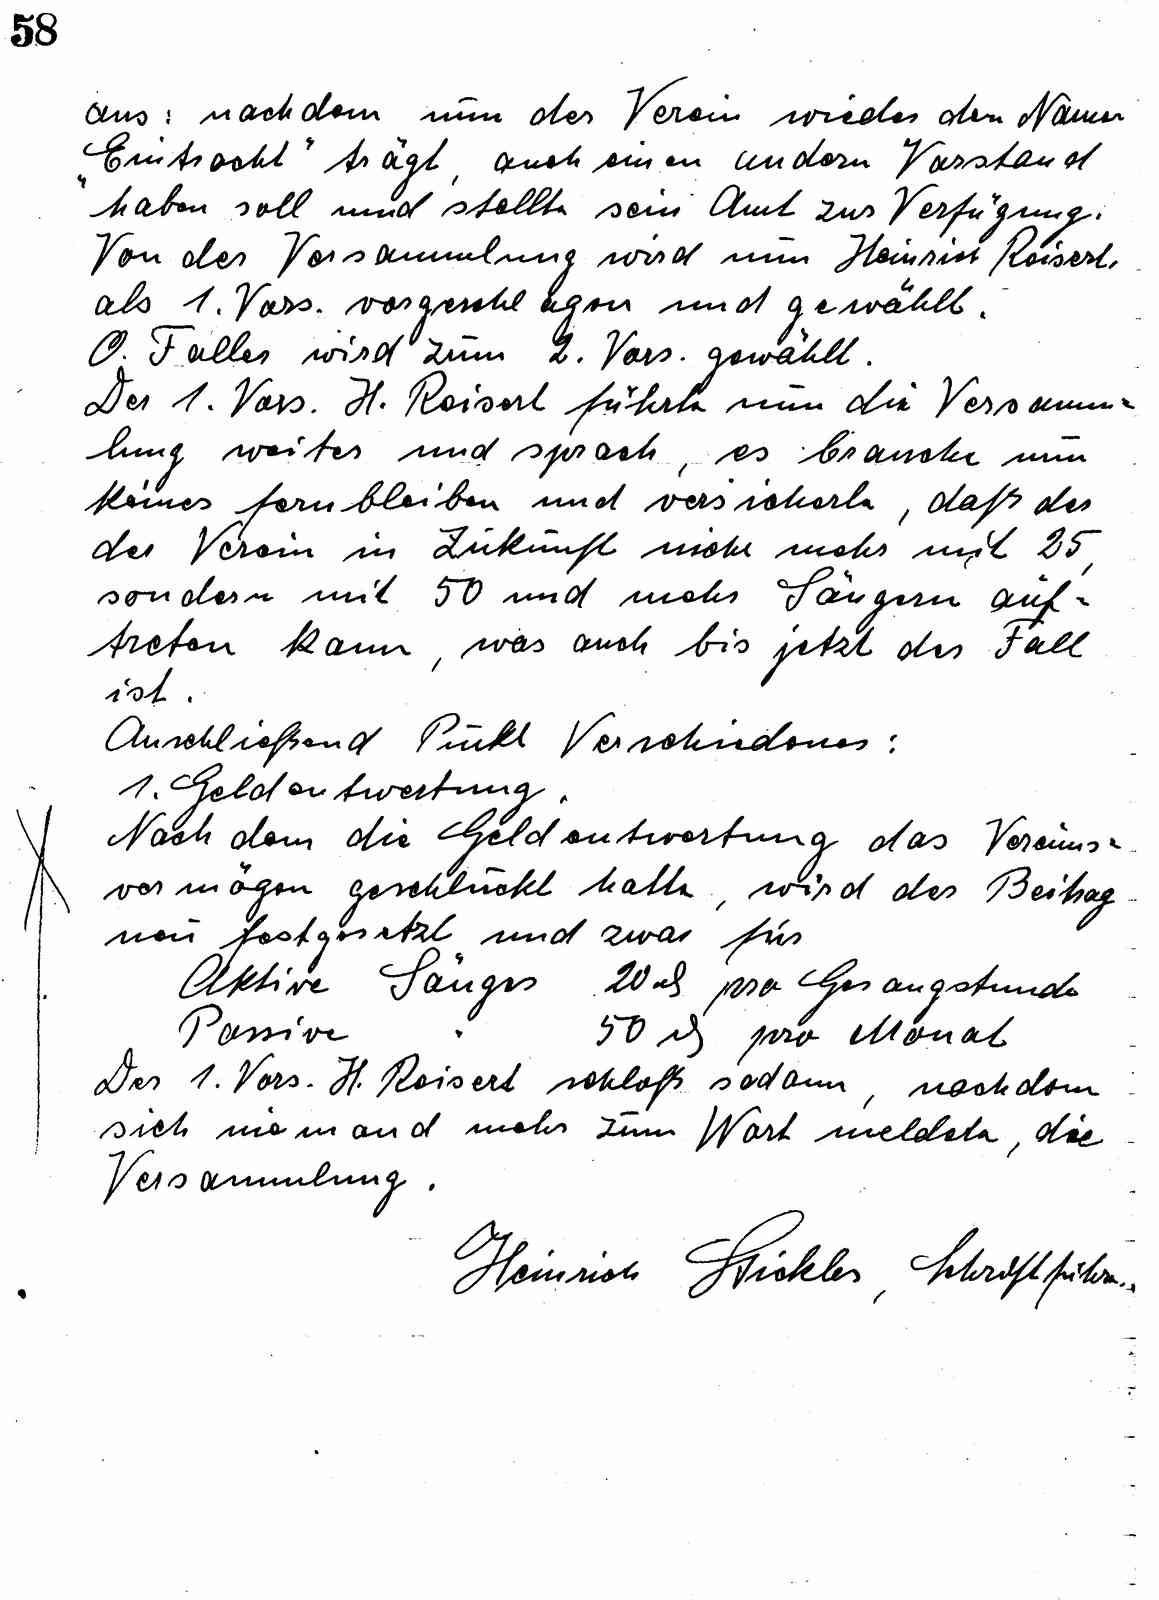 58
aus: nachdem nun der Verein wieder den Namen
"Eintracht" trägt, auch einen andern Vorstand
haben soll und stellte sein Amt zur Verfügung.
Von der Versammlung wird nun Heinrich Reisert
als 1. Vors. vorgeschlagen und gewählt.
O. Faller wird zum 2. Vors. gewählt.
Der 1. Vors. H. Reisert führte nun die Versamm-
lung weiter und sprach, es brauche nun
keiner fernbleiben und versicherte, daß der
der Verein in Zukunft nicht mehr mit 25,
sondern mit 50 und mehr Sängern auf-
treten kann, was auch bis jetzt der Fall
ist.
Anschließend Punkt Verschiedenes:
1. Geldentwertung.
Nach dem die Geldentwertung das Vereins-
vermögen geschluckt hatte, wird der Beitrag
neu festgesetzt und zwar für
Aktive Sänger 20 ₰ pro Gesangstunde
Passive " 50 ₰ pro Monat
Der 1. Vors. H. Reisert schloß sodann, nachdem
sich niemand mehr zum Wort meldete, die
Versammlung.
Heinrich Stickler, Schriftführer.